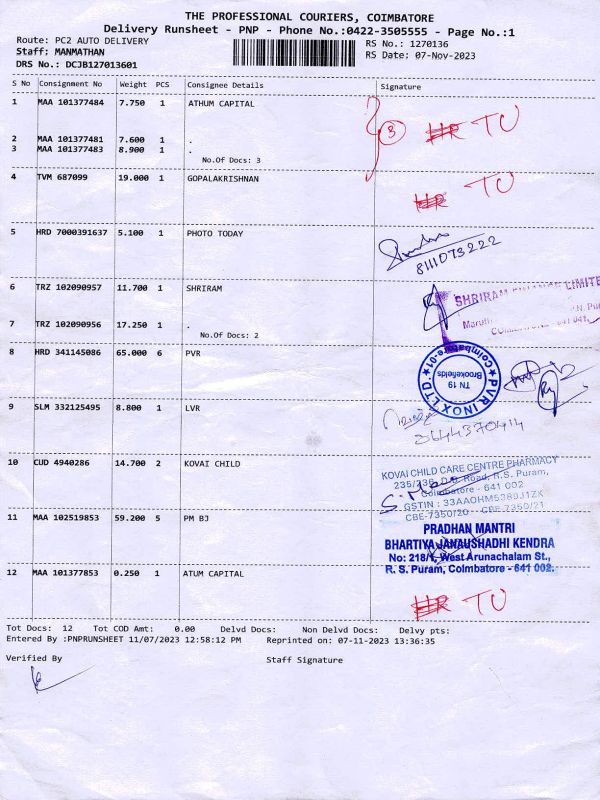 THE PROFESSIONAL COURIERS, COIMBATORE
Delivery Runsheet - PNP - Phone No.:0422-3505555 - Page No.:1
Route: PC2 AUTO DELIVERY
RS No.: 1270136
Staff: MANMATHAN
RS Date: 07-Nov-2023
DRS No.: DCJB127013601
S No Consignment No Weight PCS Consignee Details Signature
1 MAA 101377484 7.750 1 ATHUM CAPITAL
2 MAA 101377481 7.600 1 .
3 MAA 101377483 8.900 1 .
No.Of Docs: 3
3 TU
4 TVM 687099 19.000 1 GOPALAKRISHNAN
TU
5 HRD 7000391637 5.100 1 PHOTO TODAY
8111073222
6 TRZ 102090957 11.700 1 SHRIRAM
SHRIRAM FINANCE LIMITE
7 TRZ 102090956 17.250 1 .
No.Of Docs: 2
COIMBATORE - 641 041.
8 HRD 341145086 65.000 6 PVR
PVR INOX LTD
Coimbatore-01
TN 19
Brookefields
9 SLM 332125495 8.800 1 LVR
10 CUD 4940286 14.700 2 KOVAI CHILD
KOVAI CHILD CARE CENTRE PHARMACY
235/236, D.B. Road, R.S. Puram,
Coimbatore - 641 002
GSTIN : 33AAOHM5389J1ZK
CBE-7350/20 CBE-7350/21
11 MAA 102519853 59.200 5 PM BJ
PRADHAN MANTRI
BHARTIYA JANAUSHADHI KENDRA
No: 218/1, West Arunachalam St.,
R. S. Puram, Coimbatore - 641 002.
12 MAA 101377853 0.250 1 ATUM CAPITAL
TU
Tot Docs: 12 Tot COD Amt: 0.00 Delvd Docs: Non Delvd Docs: Delvy pts:
Entered By :PNPRUNSHEET 11/07/2023 12:58:12 PM Reprinted on: 07-11-2023 13:36:35
Verified By Staff Signature